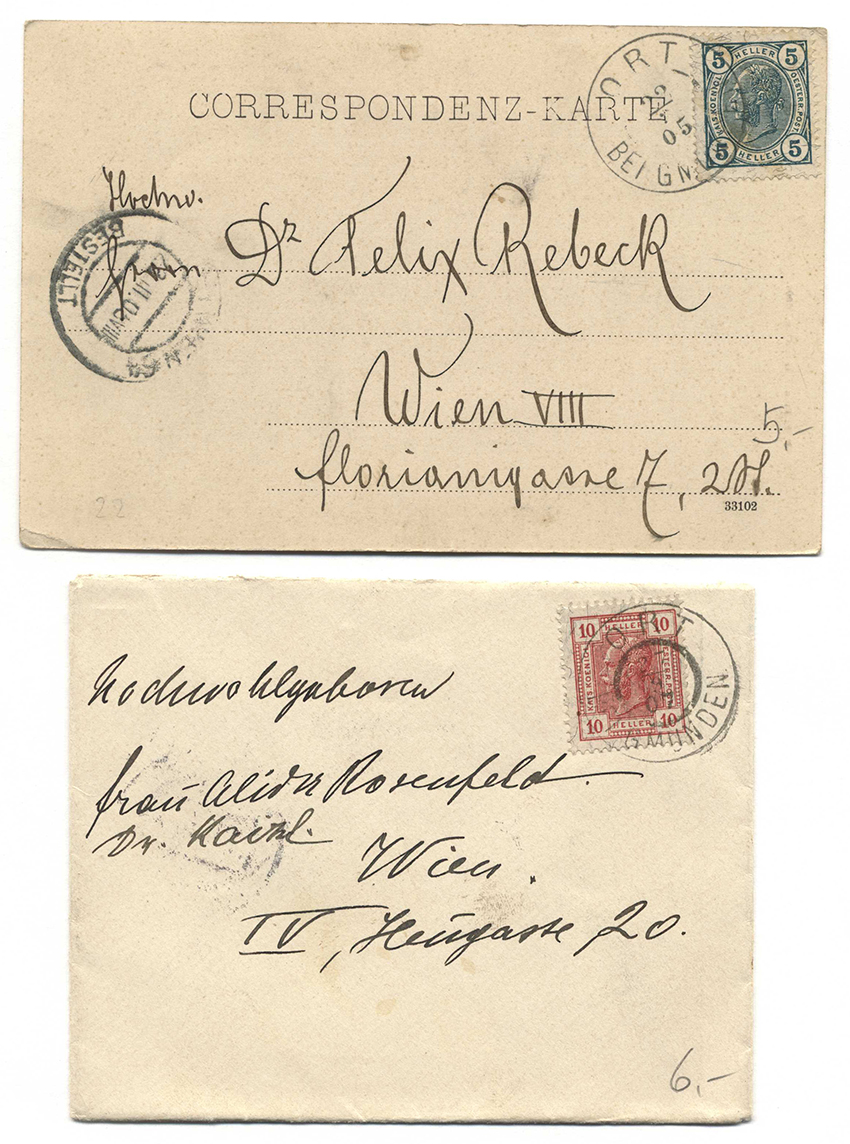 CORRESPONDENZ-KARTE
ORT
05
BEI GM
5 HELLER 5
KAIS. KOENIGL. OESTERR. POST.
5 HELLER 5
Hochw.
Herrn Dr Felix Rebeck
BESTELLT
Wien VIII
5,-
Florianigasse 7, 2 St.
33102
22
ORT
GMUNDEN
10 HELLER 10
KAIS. KOENIGL. OESTERR. POST.
10 HELLER 10
Hochwohlgeboren
Frau Alider Rosenfeld
Dr.
Wien.
IV, Heugasse 20.
6,-